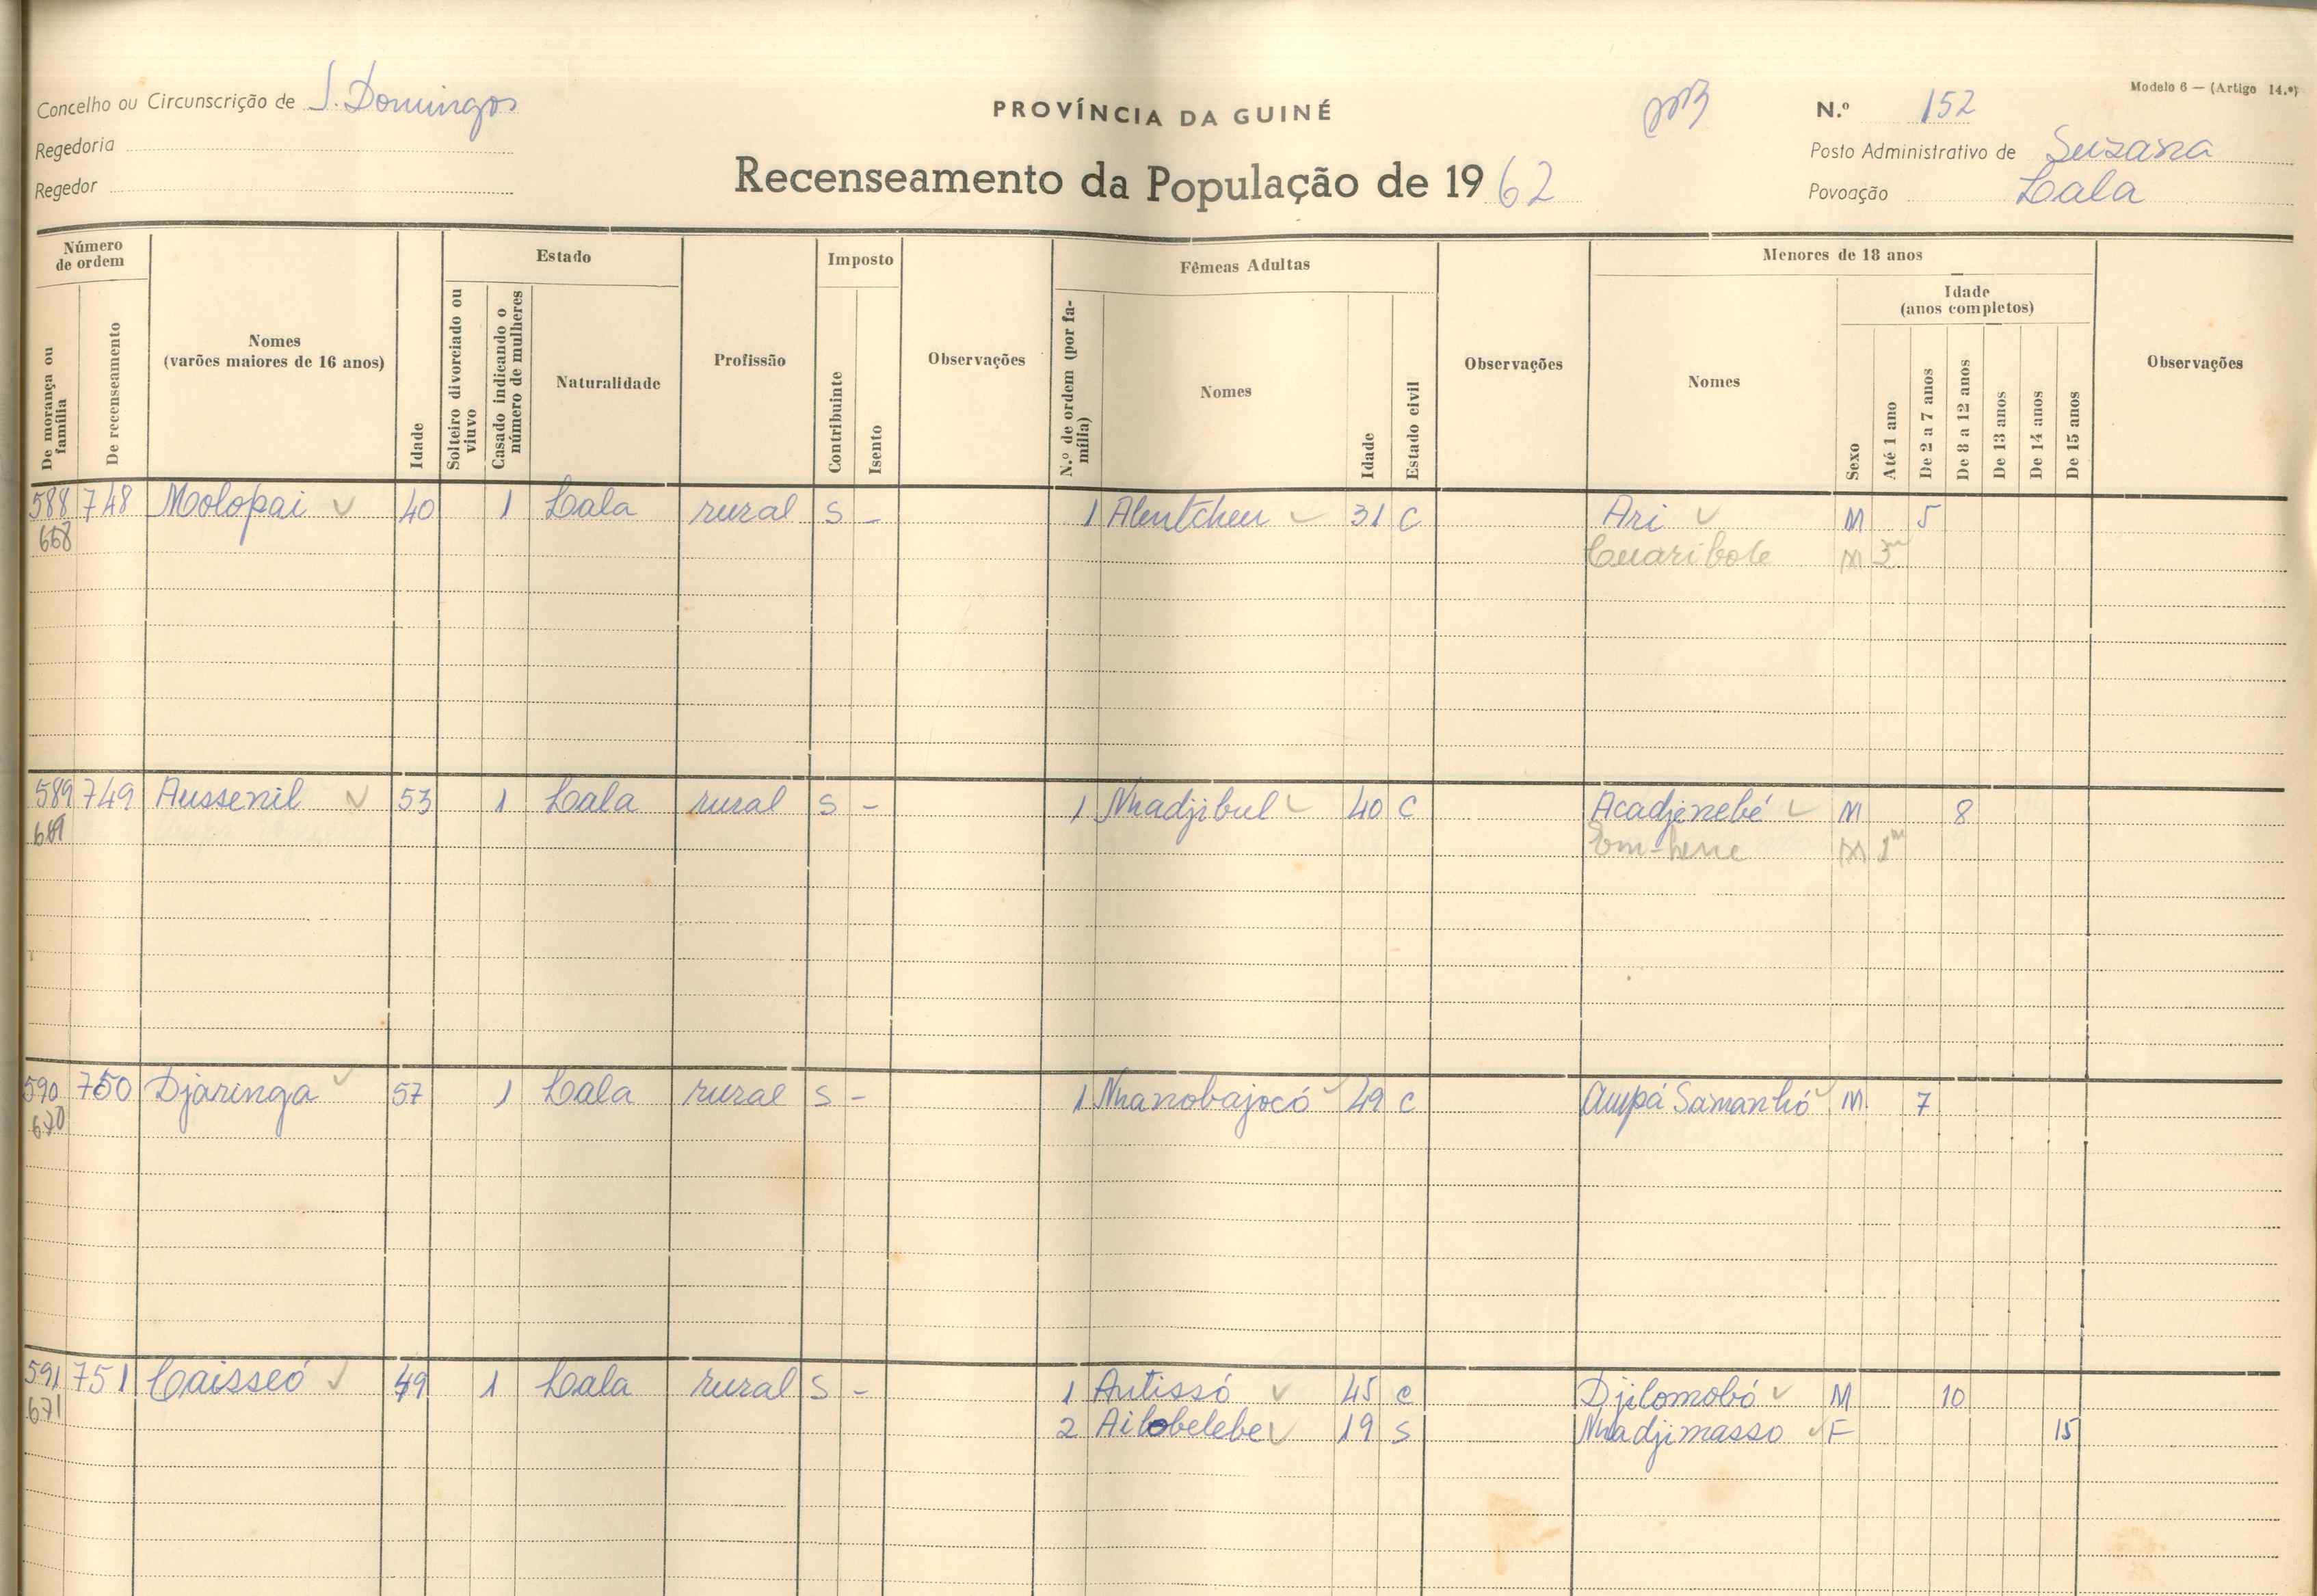 Modelo 6 — (Artigo 14.º)
Concelho ou Circunscrição de S. Domingos
PROVÍNCIA DA GUINÉ
N.º 152
Regedoria
Posto Administrativo de Suzana
Regedor
Recenseamento da População de 1962
Povoação Lala
Número de ordem
Estado
Imposto
Fêmeas Adultas
Menores de 18 anos
Idade (anos completos)
De morança ou família
De recenseamento
Nomes (varões maiores de 16 anos)
Idade
Solteiro divorciado ou viuvo
Casado indicando o número de mulheres
Naturalidade
Profissão
Contribuinte
Isento
Observações
N.º de ordem (por família)
Nomes
Idade
Estado civil
Observações
Nomes
Sexo
Até 1 ano
De 2 a 7 anos
De 8 a 12 anos
De 13 anos
De 14 anos
De 15 anos
Observações
588 748 Molopai 40 1 Lala rural S - 1 Alentcheu 31 C Ari M 5
668 Cuaribole M 3m
589 749 Aussenil 53 1 Lala rural S - 1 Nhadjibul 40 C Acadjenebé M 8
669 M 1m
590 750 Djaringa 57 1 Lala rural S - 1 Nhanobajocó 49 C Ampá Samanhó M 7
670
591 751 Caisseó 49 1 Lala rural S - 1 Antissó 45 C Djilomobó M 10
671 2 Ailobelebe 19 S Nhadjimasso F 15